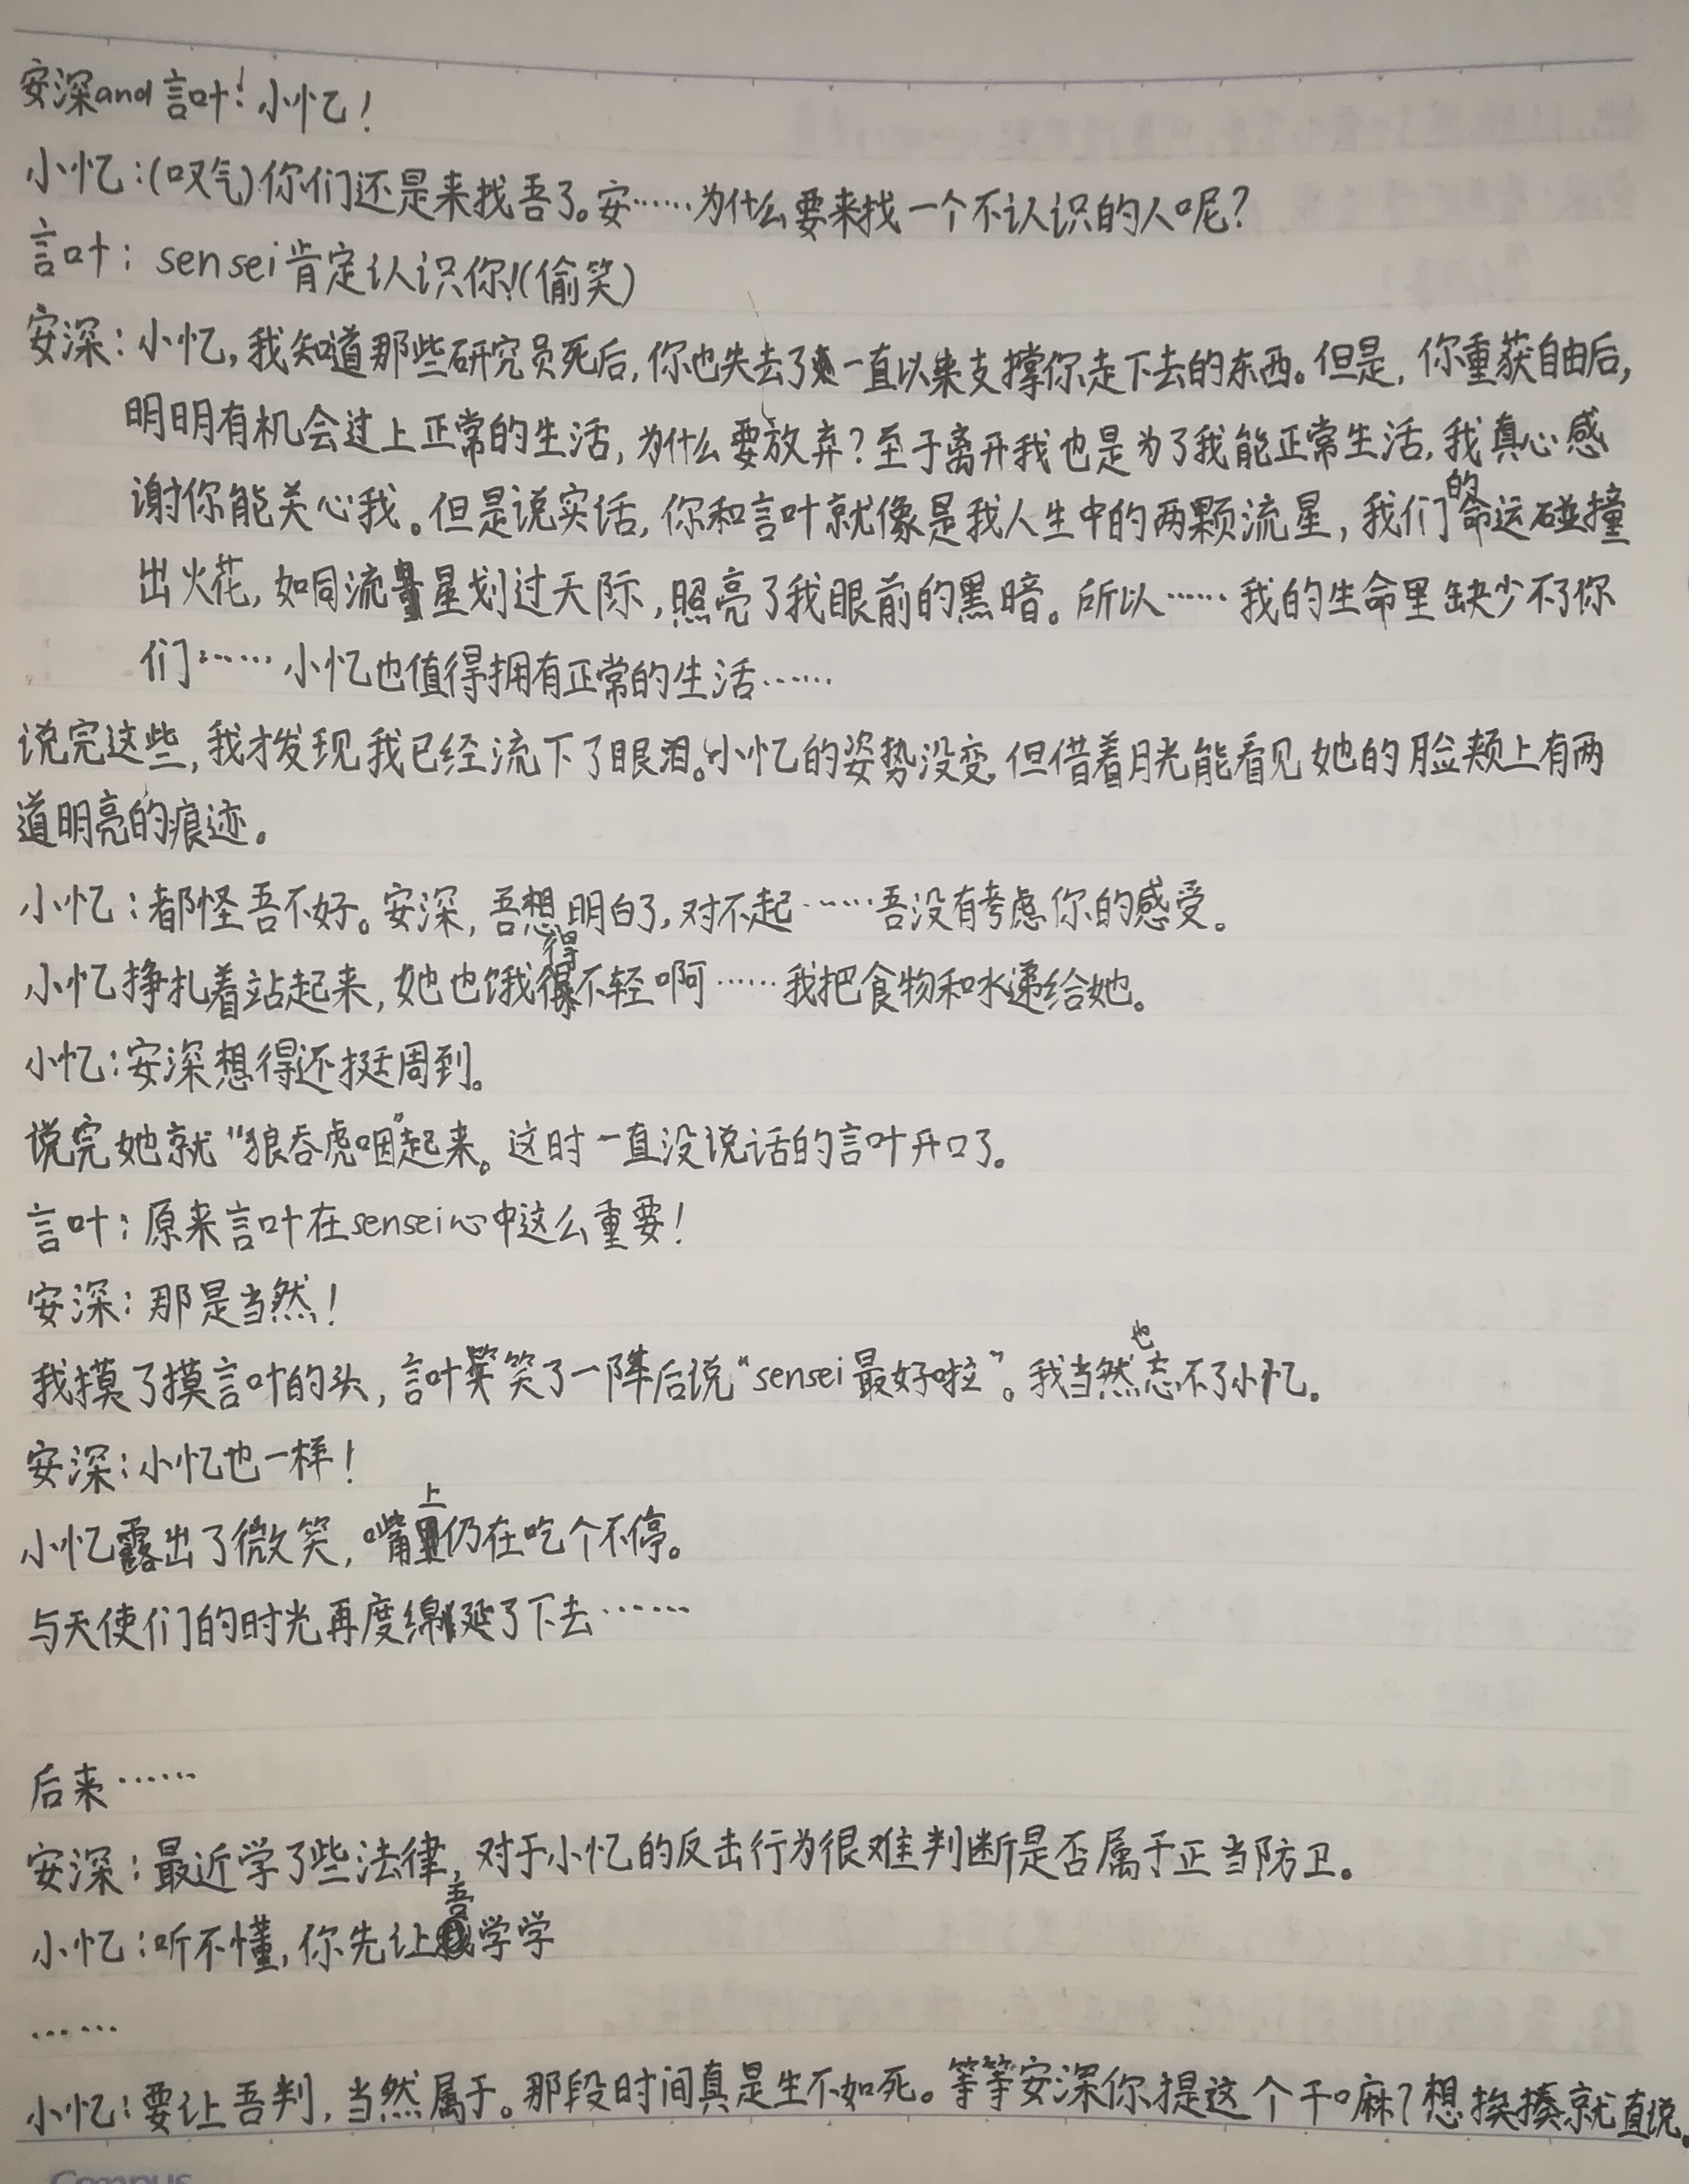 安深and言叶：小忆！
小忆：(叹气)你们还是来找吾了。安……为什么要来找一个不认识的人呢？
言叶：sensei肯定认识你！(偷笑)
安深：小忆，我知道那些研究员死后，你也失去了一直以来支撑你走下去的东西。但是，你重获自由后，
明明有机会过上正常的生活，为什么要放弃？至于离开我也是为了我能正常生活，我真心感
谢你能关心我。但是说实话，你和言叶就像是我人生中的两颗流星，我们的命运碰撞
出火花，如同流星划过天际，照亮了我眼前的黑暗。所以……我的生命里缺少不了你
们……小忆也值得拥有正常的生活……
说完这些，我才发现我已经流下了眼泪。小忆的姿势没变，但借着月光能看见她的脸颊上有两
道明亮的痕迹。
小忆：都怪吾不好。安深，吾想明白了，对不起……吾没有考虑你的感受。
小忆挣扎着站起来，她也饿得不轻啊……我把食物和水递给她。
小忆：安深想得还挺周到。
说完她就“狼吞虎咽”起来。这时一直没说话的言叶开口了。
言叶：原来言叶在sensei心中这么重要！
安深：那是当然！
我摸了摸言叶的头，言叶笑了一阵后说“sensei最好啦”。我当然也忘不了小忆。
安深：小忆也一样！
小忆露出了微笑，嘴上仍在吃个不停。
与天使们的时光再度绵延了下去……
后来……
安深：最近学了些法律，对于小忆的反击行为很难判断是否属于正当防卫。
小忆：听不懂，你先让吾学学
……
小忆：要让吾判，当然属于。那段时间真是生不如死。等等安深你提这个干嘛？想挨揍就直说。
Campus